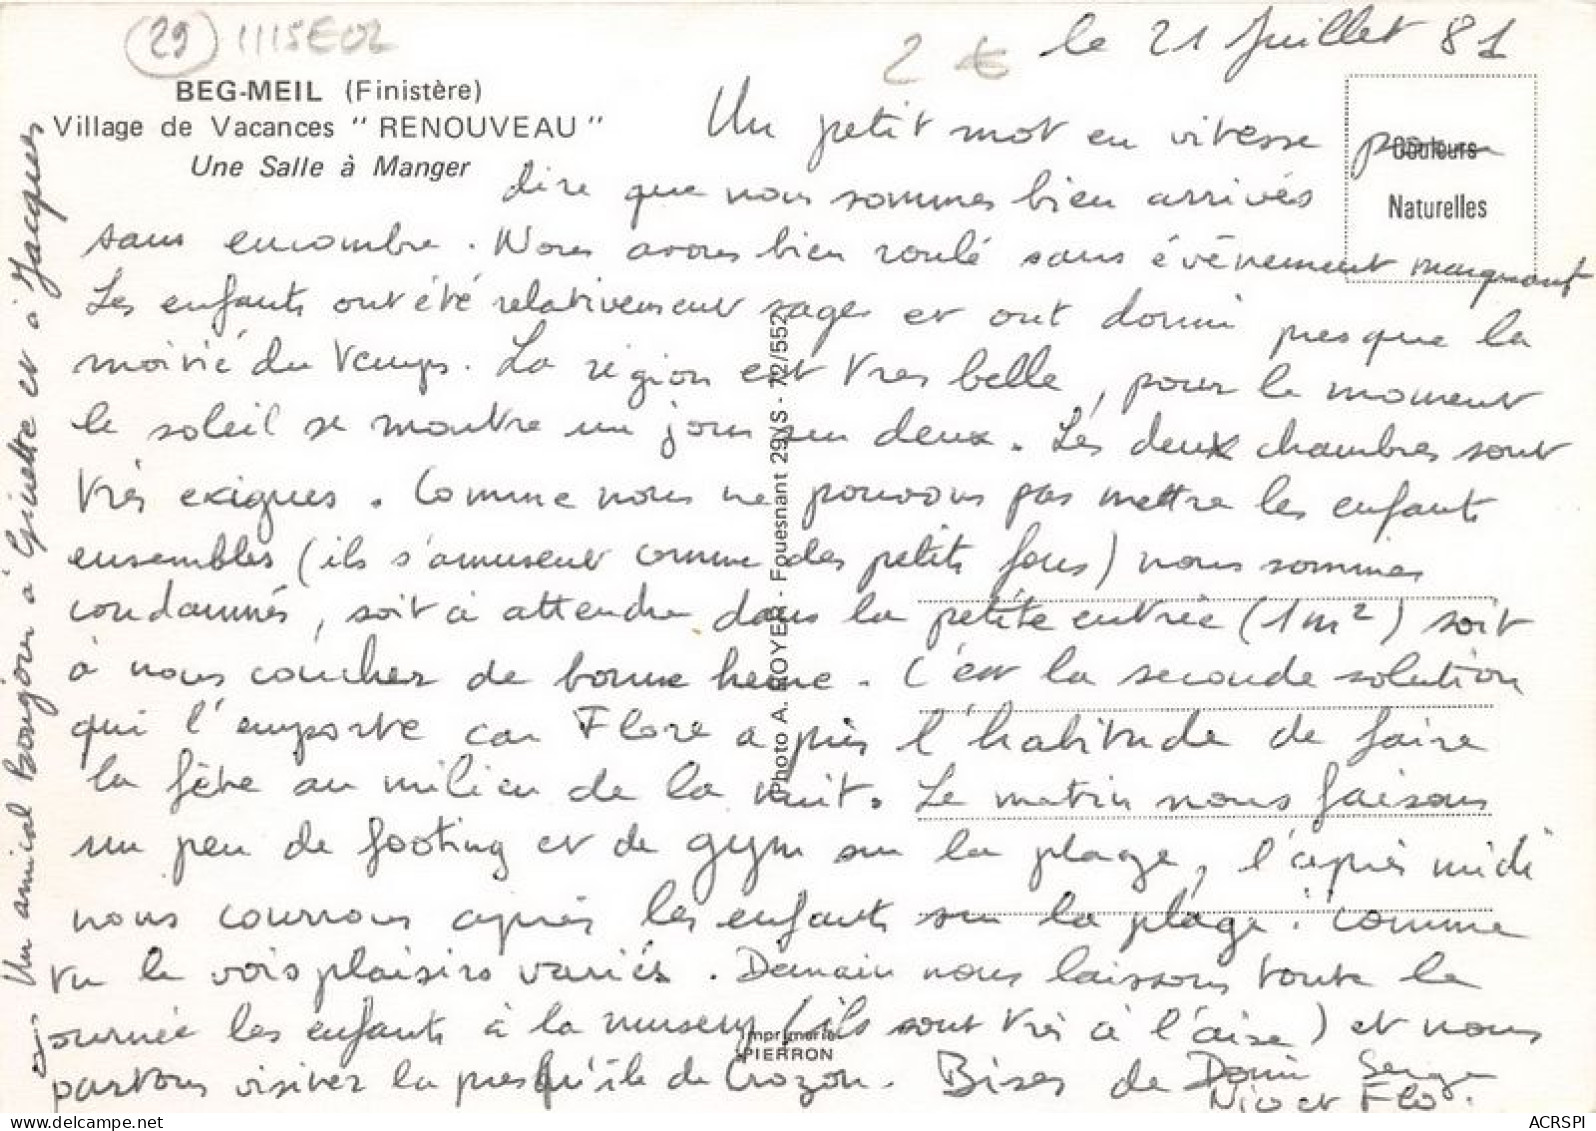 29 1115E02
2 €
le 21 Juillet 81
BEG-MEIL (Finistère)
Village de Vacances " RENOUVEAU "
Une Salle à Manger
Couleurs
Naturelles
Un petit mot en vitesse pour
dire que nous sommes bien arrivés
sans encombre. Nous avons bien roulé sans évènement marquant
Les enfants ont été relativement sages et ont dormi presque la
moitié du temps. La région est très belle, pour le moment
le soleil se montre un jour sur deux. Les deux chambres sont
très exigues. Comme nous ne pouvons pas mettre les enfants
ensembles (ils s'amusent comme des petits fous) nous sommes
condamnés, soit à attendre dans la petite entrée (1m²) soit
à nous coucher de bonne heure. C'est la seconde solution
qui l'emporte car Flore a pris l'habitude de faire
la fête au milieu de la nuit. Le matin nous faisons
un peu de footing et de gym sur la plage, l'après midi
nous courrons après les enfants sur la plage : comme
tu le vois plaisirs variés. Demain nous laissons toute la
journée les enfants à la nursery (ils sont très à l'aise) et nous
partons visiter la presqu'île de Crozon. Bises de Domi Serge
Nico et Flo.
Un amical Bonjour à Ginette et à Jacques
Photo A. ROYER - Fouesnant 29/S - 72/552
Imprimerie
PIERRON
ACRSPI